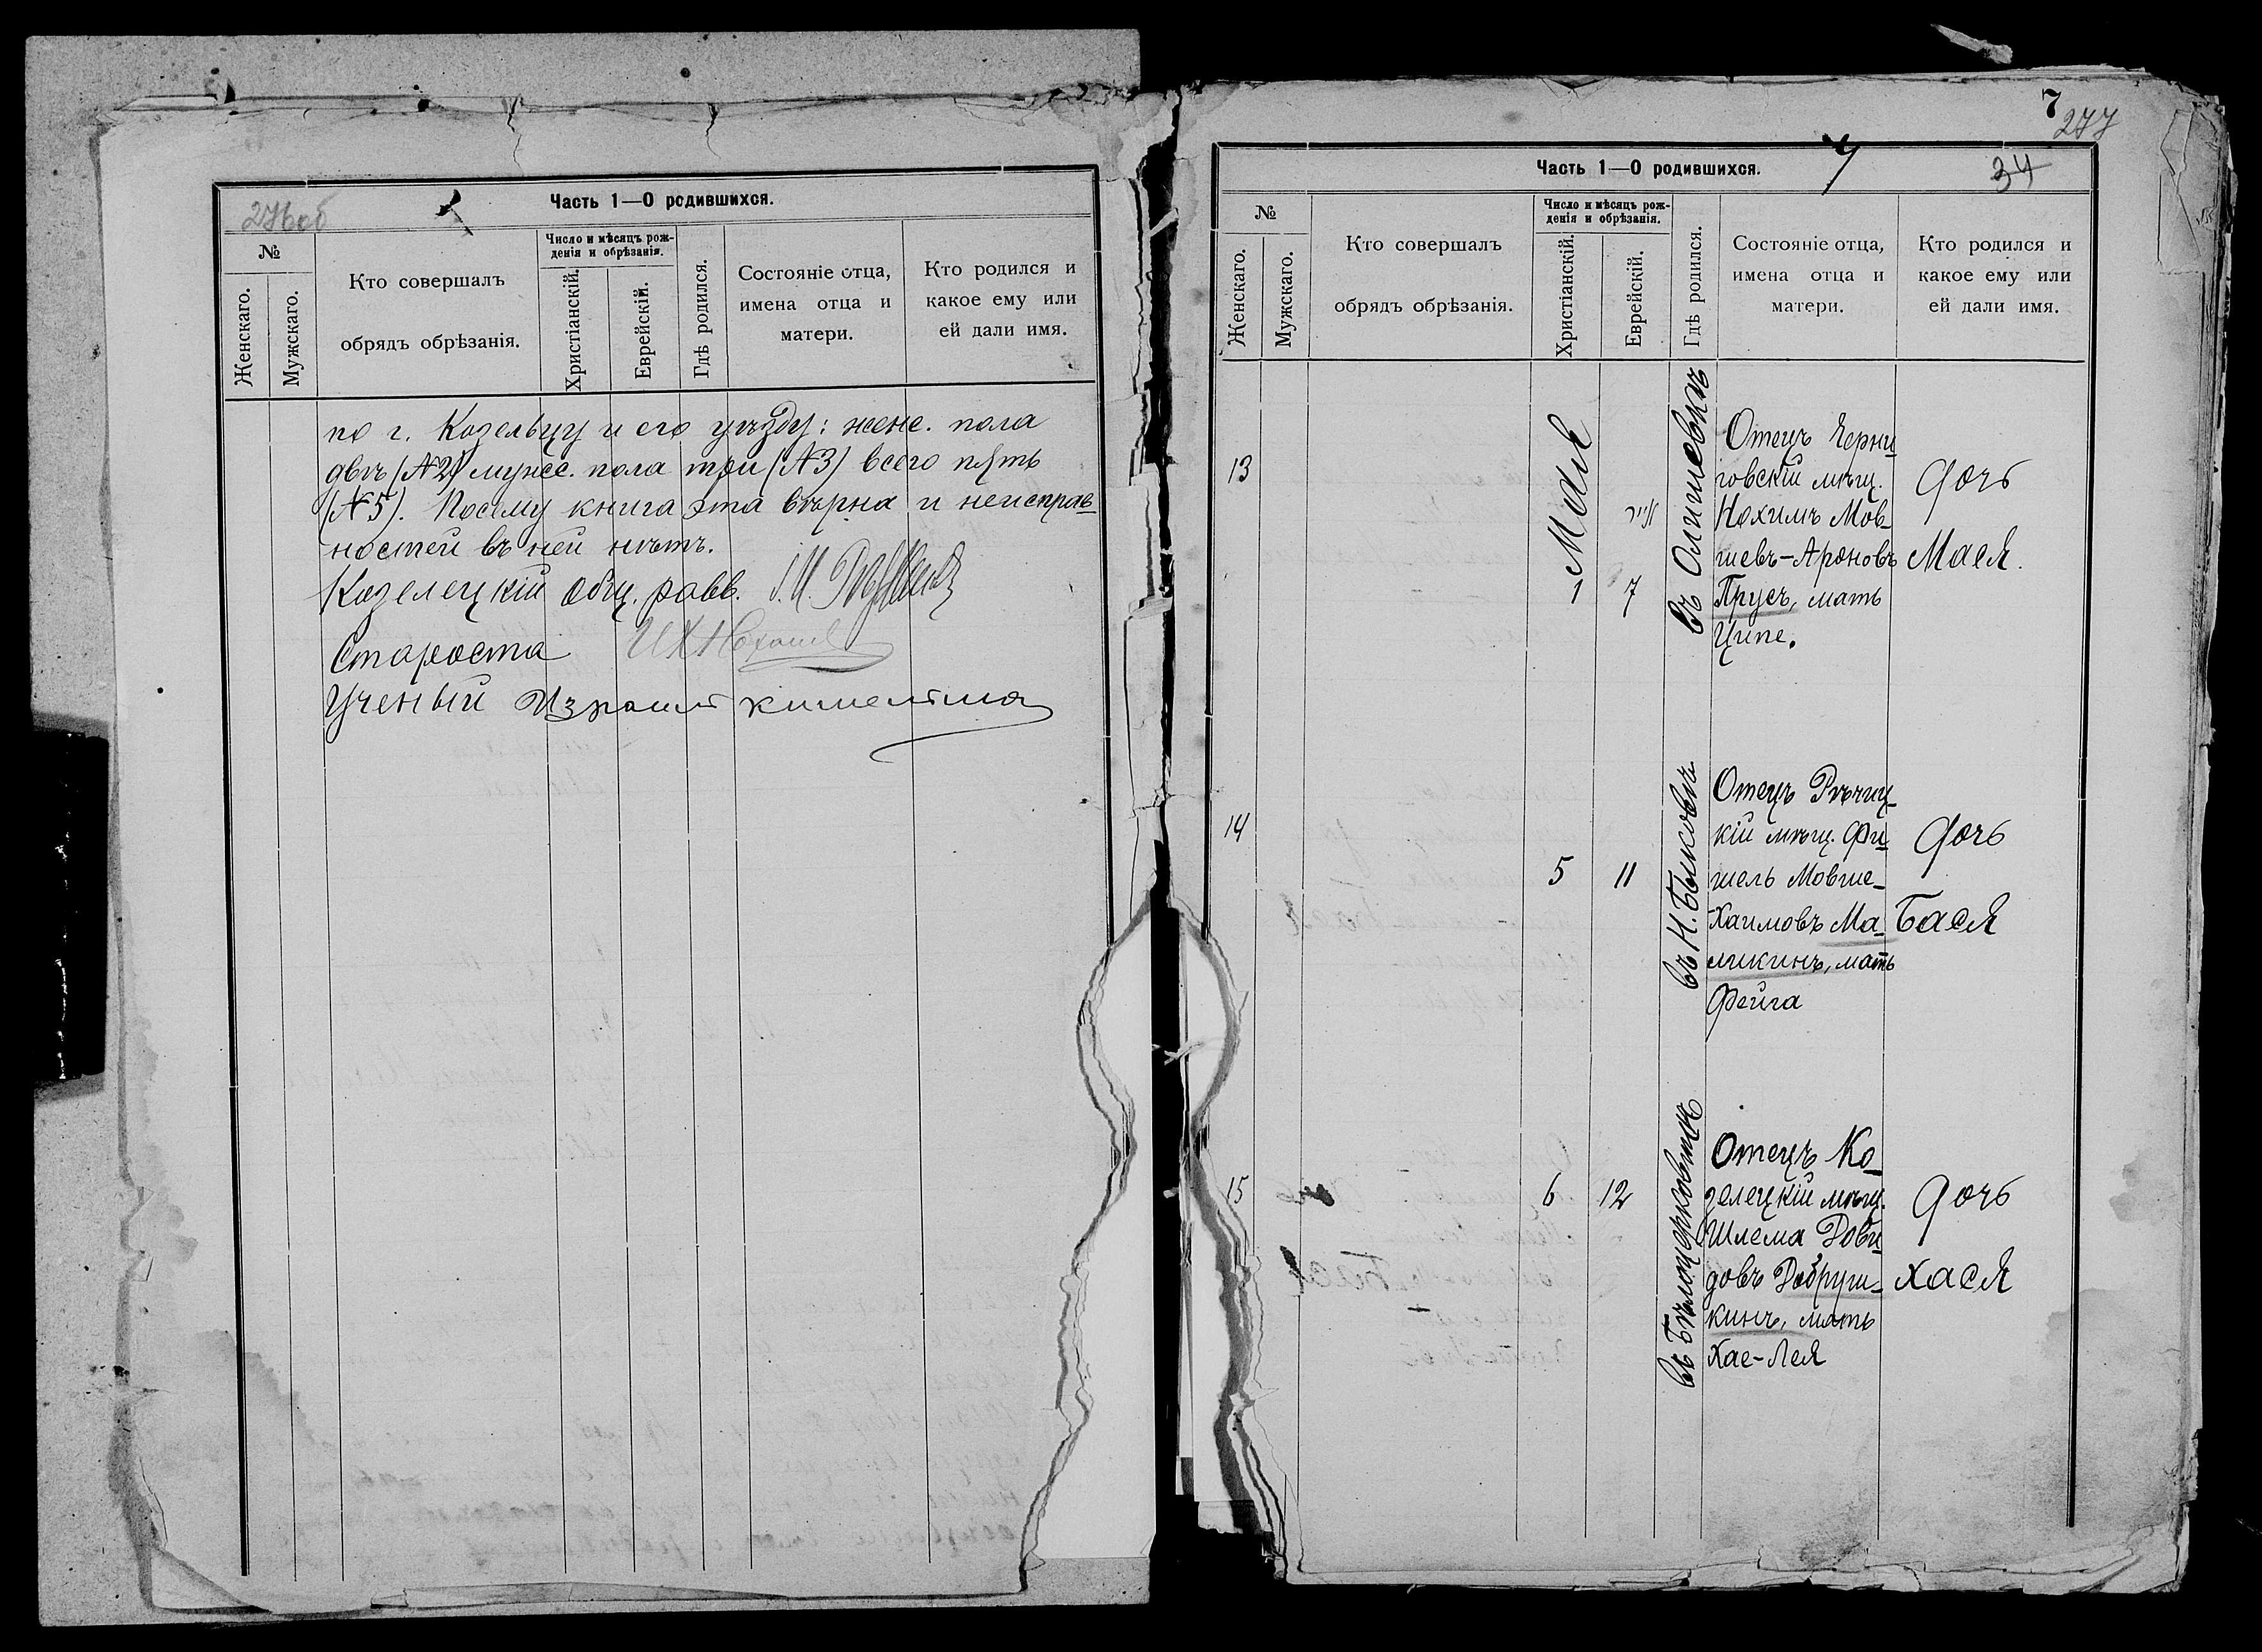 276об
Часть 1—О родившихся.
№
Женскаго.
Мужскаго.
Кто совершалъ
обрядъ обрѣзанія.
Число и мѣсяцъ рож-
денія и обрѣзанія.
Христіанскій.
Еврейскій.
Гдѣ родился.
Состояніе отца,
имена отца и
матери.
Кто родился и
какое ему или
ей дали имя.
по г. Козельцу и его уѣзду: женс. пола
двѣ (№2) мужес. пола три (№3) всего пять
(№5). Посему книга эта вѣрна и неисправ-
ностей въ ней нѣтъ.
Козелецкій общ. равв.
Староста
Ученый Израиль
7
277
34
Часть 1—О родившихся.
№
Женскаго.
Мужскаго.
Кто совершалъ
обрядъ обрѣзанія.
Число и мѣсяцъ рож-
денія и обрѣзанія.
Христіанскій.
Еврейскій.
Гдѣ родился.
Состояніе отца,
имена отца и
матери.
Кто родился и
какое ему или
ей дали имя.
13
Мая
1
אייר
7
въ Олишевкѣ
Отецъ Черни
говскій мѣщ.
Нохимъ Мов-
шевъ-Ароновъ
Прусъ, мать
Ципе.
Дочь
Мася.
14
5
11
въ Н. Быковѣ
Отецъ Рѣчиц-
кій мѣщ. Фи
шель Мовше-
-Хаимовъ Ма-
ликинъ, мать
Фейга
Дочь
Бася
15
6
12
въ Бѣлоцерковцѣ
Отецъ Ко
зелецкій мѣщ.
Шлема Дови
довъ Добруш-
кинъ, мать
Хае-Лея
Дочь
Хася